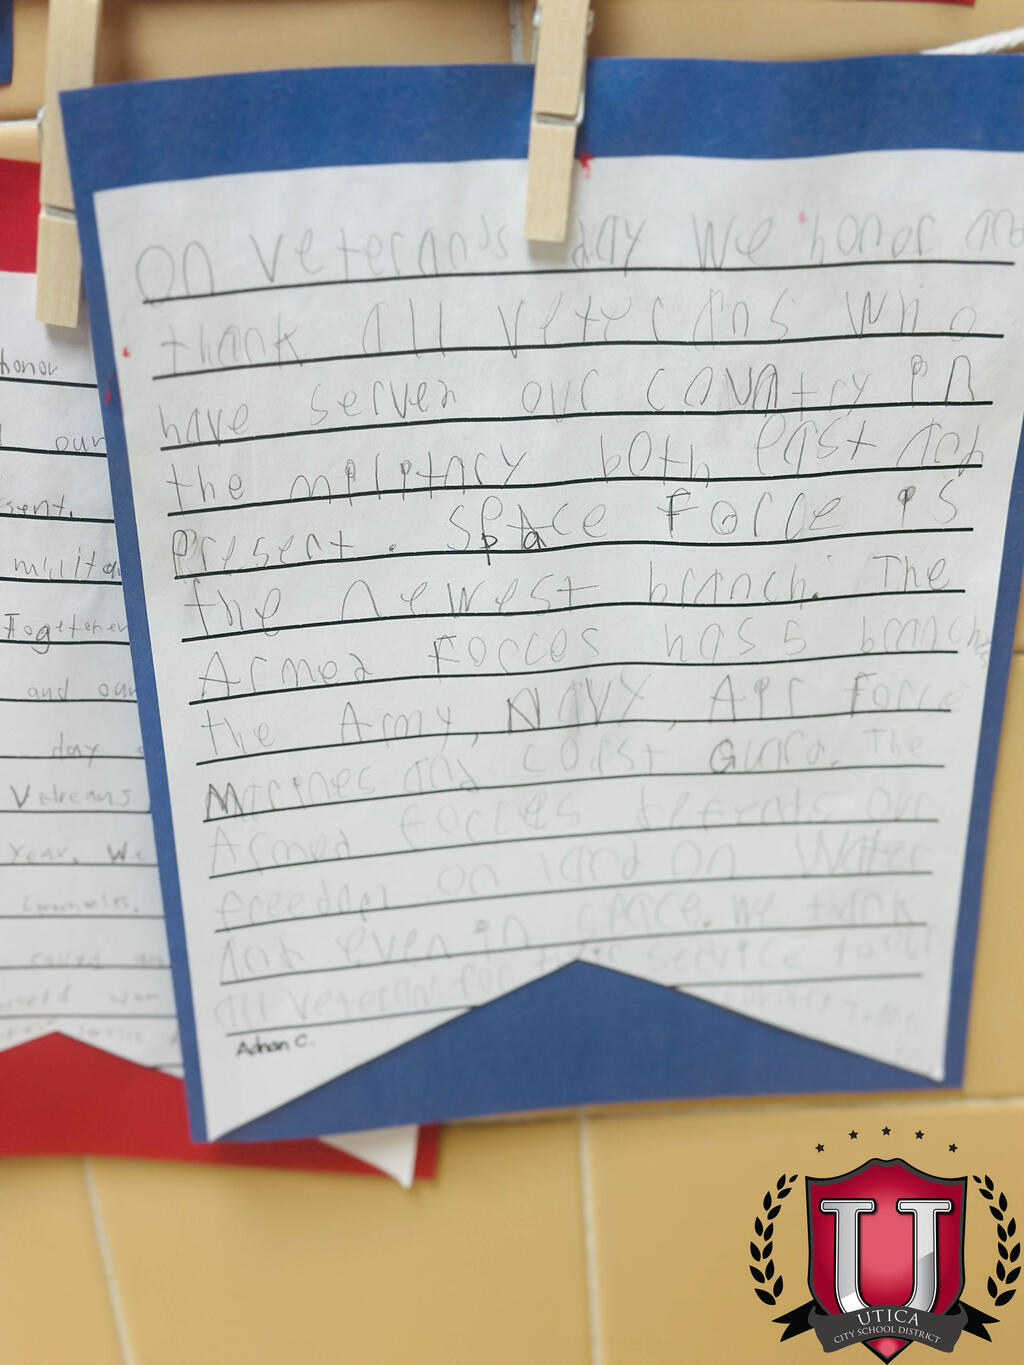 On Veteran's day We honor and
thank all veterans who
have served our country in
the military both past and
Present. Space Force is
the newest branch. The
Armed Forces has 5 branches
the Army, NAVY, Air Force
Marines and Coast Guard. The
Armed forces defends our
freedom on land on Water
And even in space. We thank
all veterans for their service to our
Adnan C.
honor
our
sent.
milita
Together
and our
day
Velreans
Year. We
called an
world war
UTICA
CITY SCHOOL DISTRICT